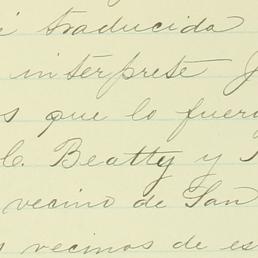 i traducida
intérprete J
s que lo fuero
C. Beatty y
vecino de San
s vecinos de es